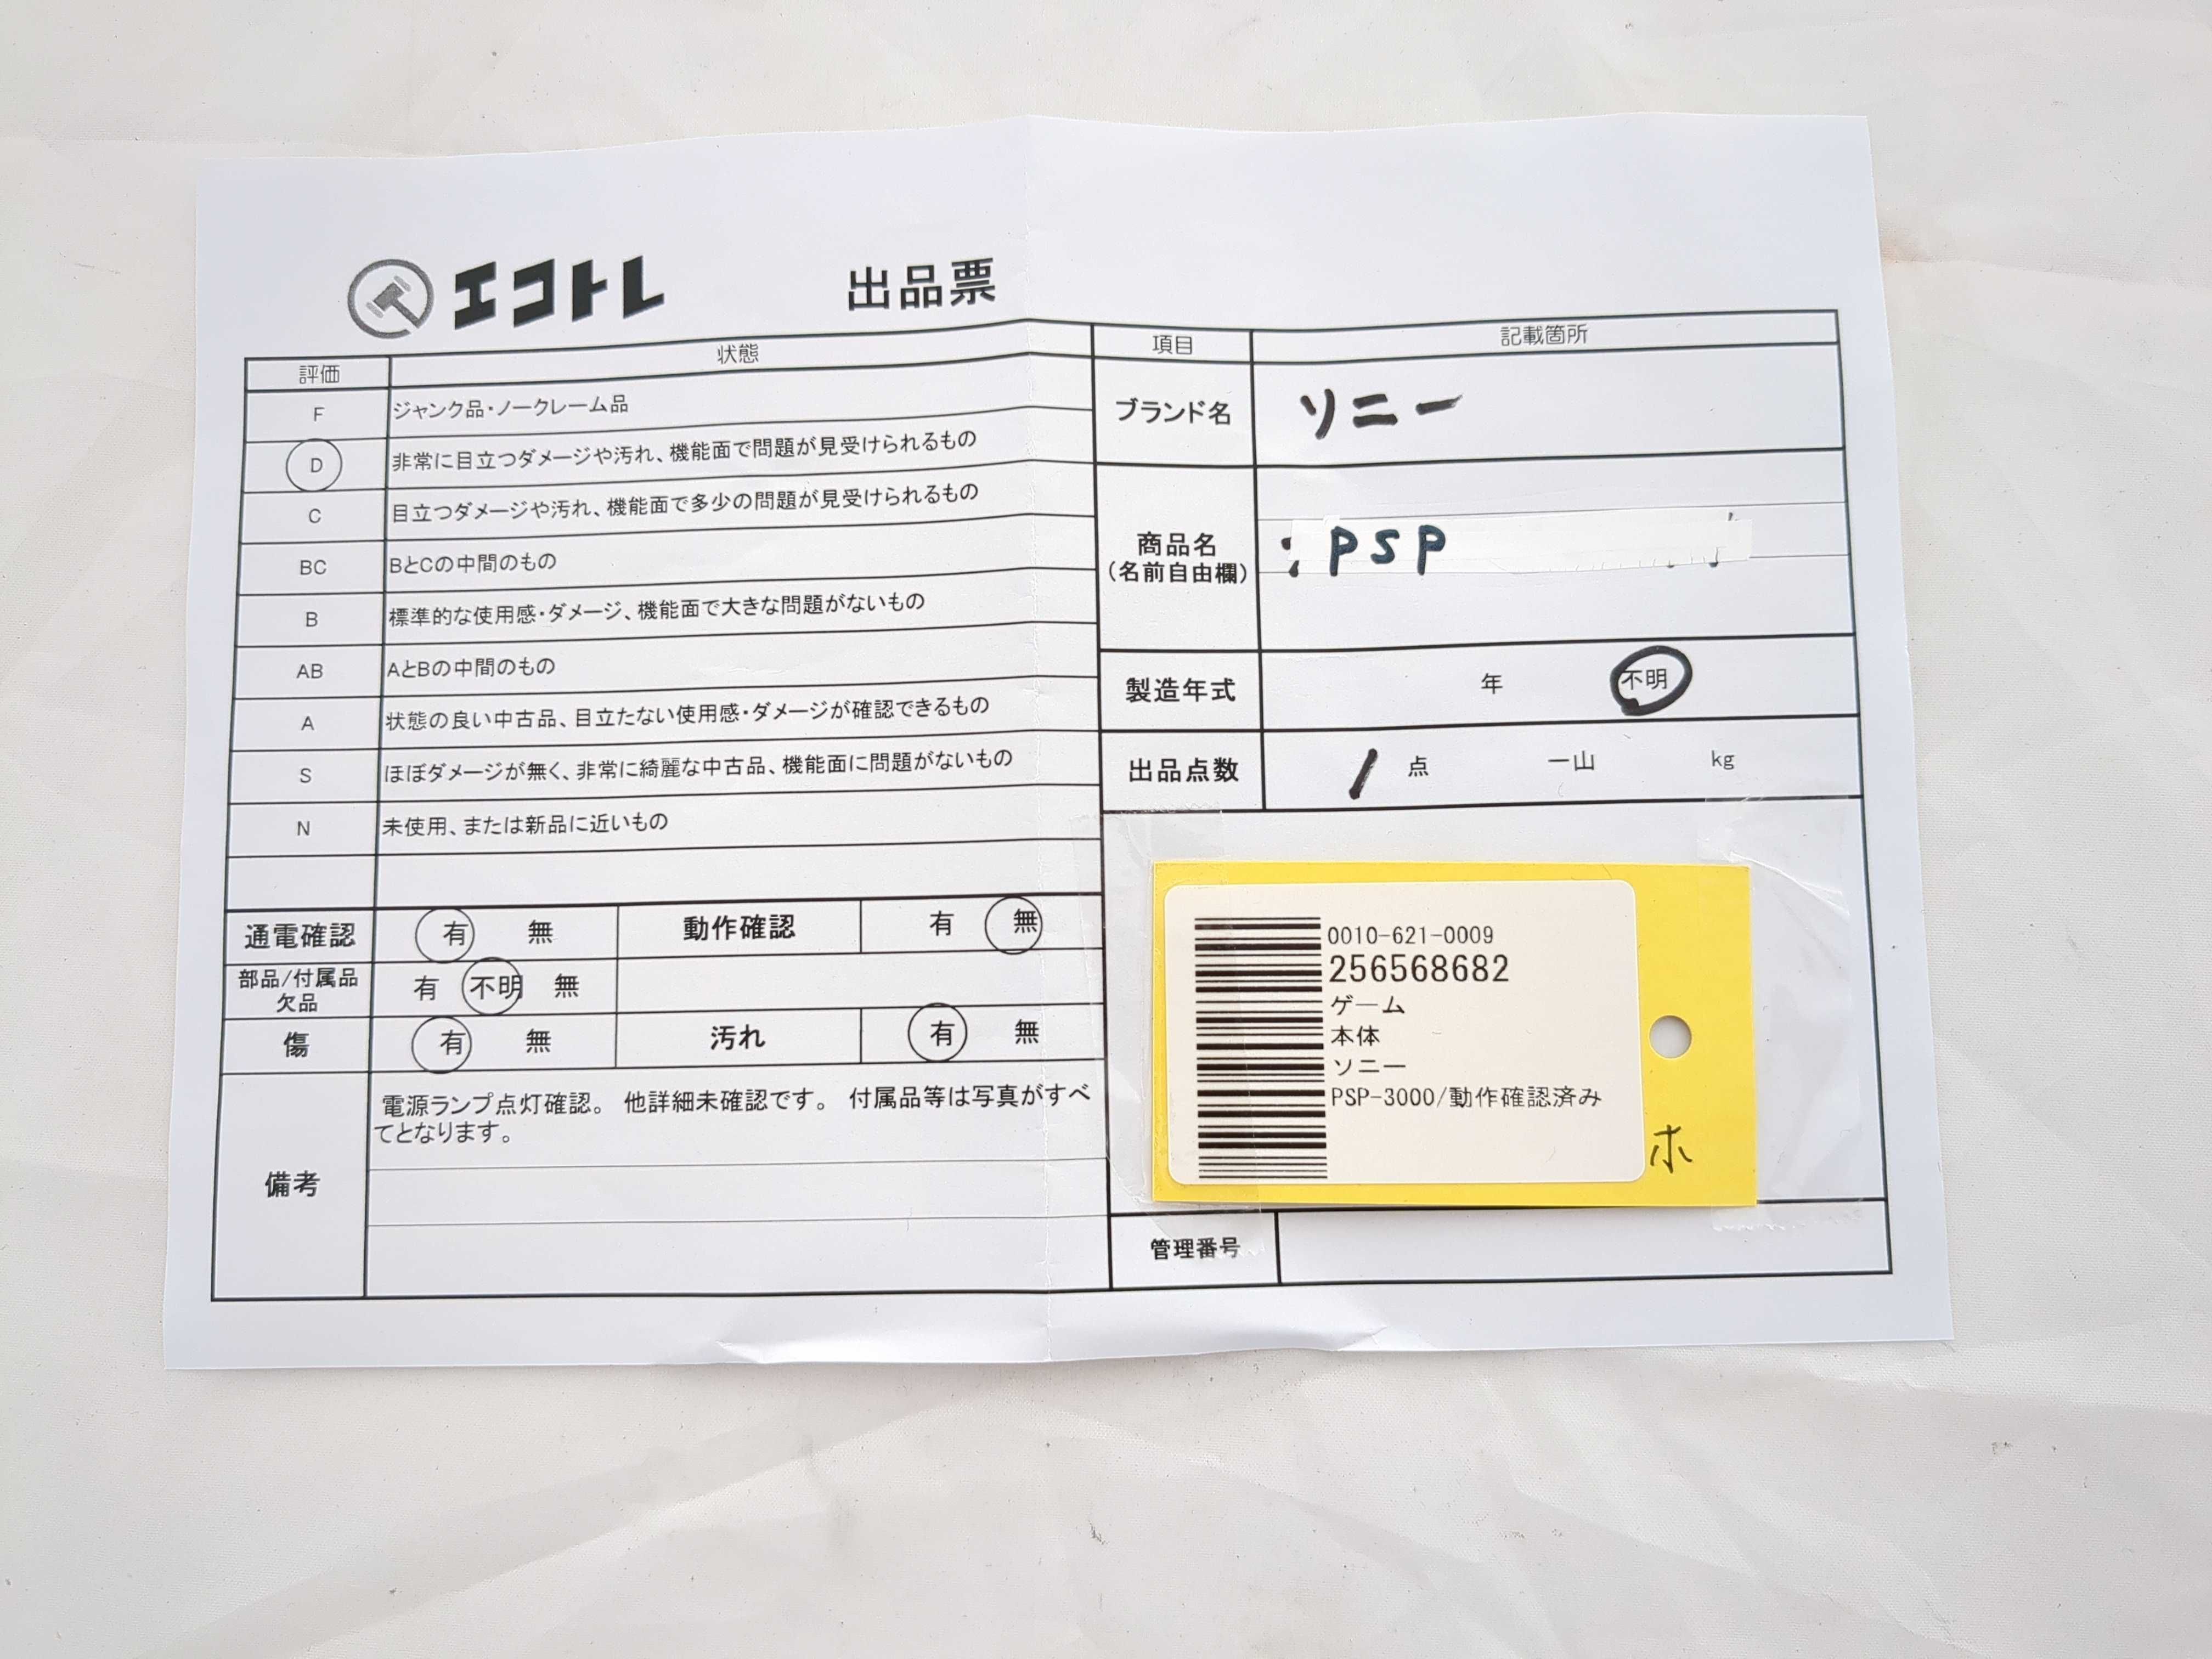 エコトレ 出品票
評価 状態
F ジャンク品・ノークレーム品
D 非常に目立つダメージや汚れ、機能面で問題が見受けられるもの
C 目立つダメージや汚れ、機能面で多少の問題が見受けられるもの
BC BとCの中間のもの
B 標準的な使用感・ダメージ、機能面で大きな問題がないもの
AB AとBの中間のもの
A 状態の良い中古品、目立たない使用感・ダメージが確認できるもの
S ほぼダメージが無く、非常に綺麗な中古品、機能面に問題がないもの
N 未使用、または新品に近いもの
通電確認 有 無 動作確認 有 無
部品/付属品
欠品 有 不明 無
傷 有 無 汚れ 有 無
備考
電源ランプ点灯確認。 他詳細未確認です。 付属品等は写真がすべ
てとなります。
項目 記載箇所
ブランド名 ソニー
商品名
(名前自由欄)
PSP
製造年式 年 不明
出品点数 1 点 一山 kg
0010-621-0009
256568682
ゲーム
本体
ソニー
PSP-3000/動作確認済み
ホ
管理番号